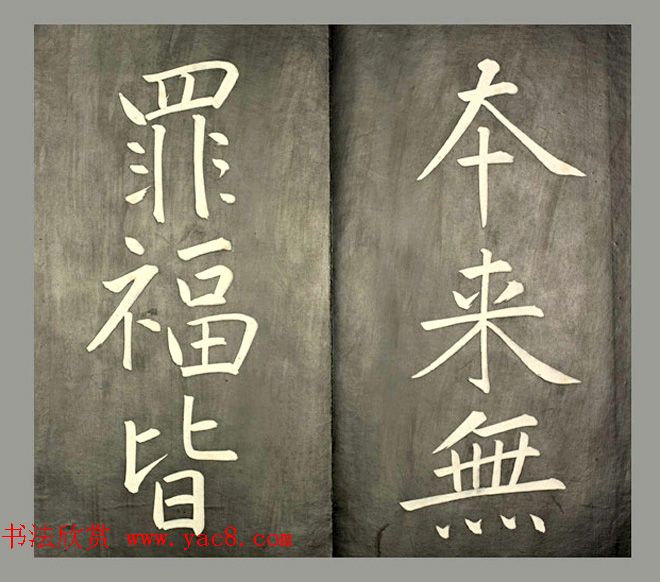 本来無
罪福皆
书法欣赏 www.yac8.com